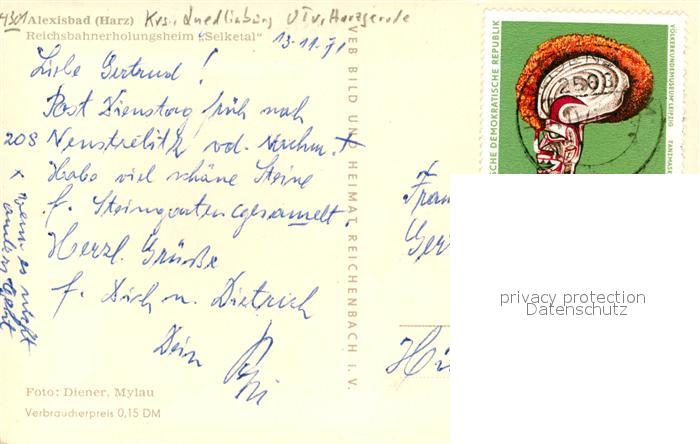 4301 Alexisbad (Harz) Krs. Quedlinburg OT v. Harzgerode
Reichsbahnerholungsheim "Selketal"
13.11.71
Liebe Gertrud!
Post Dienstag früh nach
Neustrelitz od. Nachm. x
208
Habe viel schöne Steine
f. Steingarten gesammelt.
Herzl. Grüße
f. Dich u. Dietrich
Dein
x wenn es nicht
anders geht
Foto: Diener, Mylau
Verbraucherpreis 0,15 DM
VEB BILD UND HEIMAT REICHENBACH I. V.
SCHE DEMOKRATISCHE REPUBLIK
VÖLKERKUNDEMUSEUM LEIPZIG
TANZMASK
Frau
privacy protection
Datenschutz